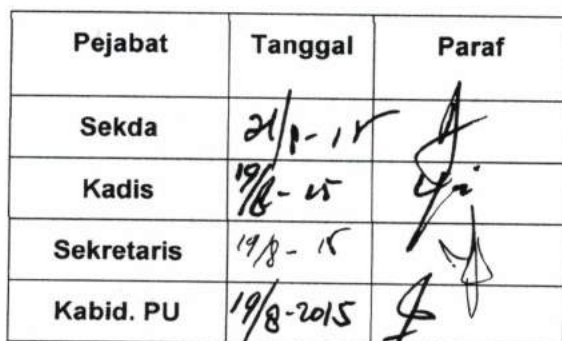 Pejabat Tanggal Paraf
Sekda
Kadis 19/8-15
Sekretaris 19/8-15
Kabid. PU 19/8-2015